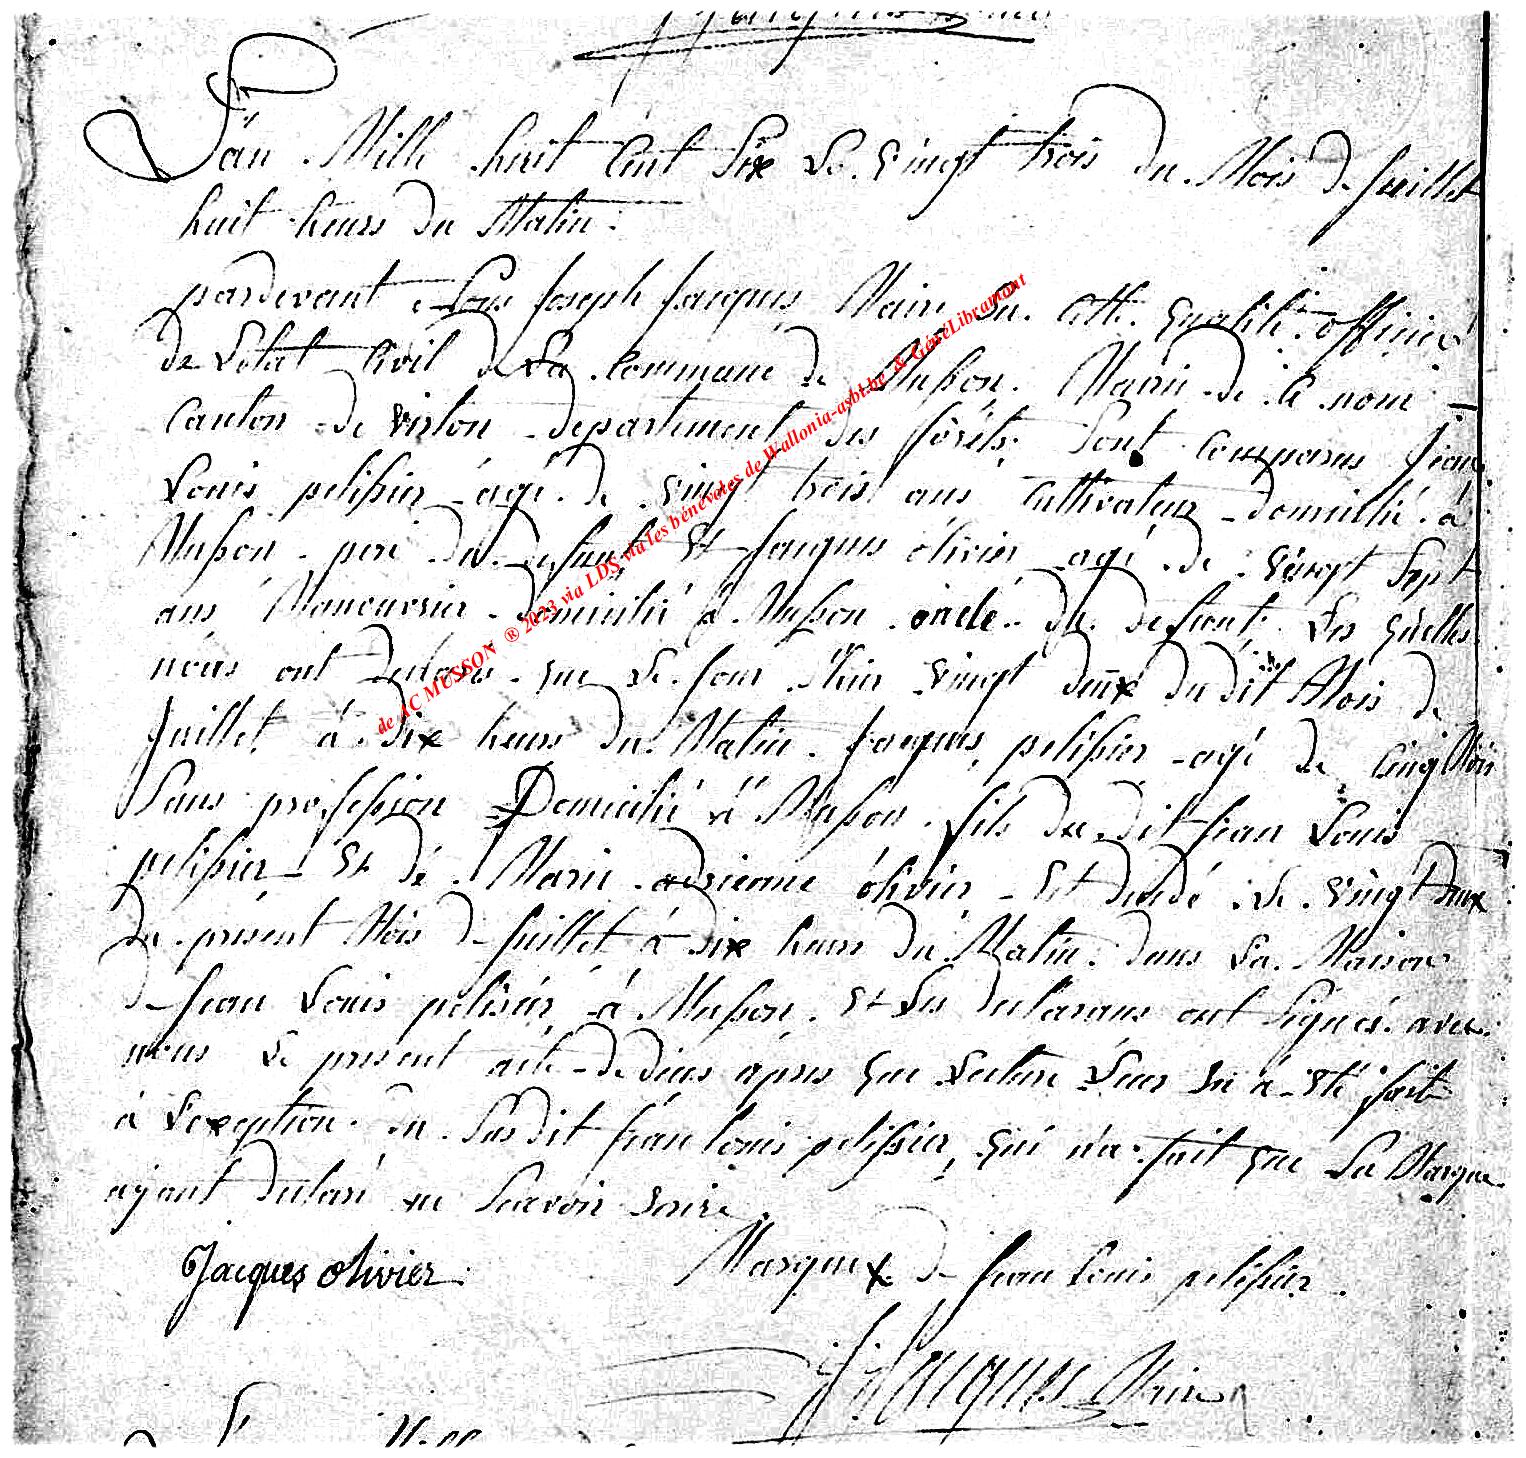 L'an Mille huit Cent Six Le vingt trois du Mois de Juillet
huit heures du Matin.
pardevant Nous Joseph Jacques Maire En Cette qualité officier
de L'état Civil de La Commune de Musson. Mairie de Ce nom
Canton de virton departement des forêts, Sont Comparus Jean
Louis pelissier âgé de vingt trois ans Cultivateur domicilié à
Musson pere du defunt Et Jacques ôlivier agé de vingt Sept
ans Manouvrier domicilié à Musson oncle du defunt, Les quelles
nous ont declaré que Le Jour d'hier vingt deux du dit Mois de
Juillet à dix heures du Matin. Jacques pelissier agé de Cinq Mois
Sans profession Domicilié à Musson. fils du dit Jean Louis
pelissier Et dé Marie adrienne ôlivier Est decedé Le vingt deux
du présent Mois de Juillet à dix heures du Matin. dans La Maison
de Jean Louis pelisier à Musson. Et Les declarans ont Signés avec
nous Le present acte de décès àprés que Lecture Leur En à Eté fait
à L'exception du Susdit Jean louis pelissier, qui n'a fait que Sa Marque
ayant declaré ne Scavoir Ecrire
Jacques olivier Marque x de Jean Louis pelissier
J J Jacques Maire
de AC MUSSON ® 2023 via LDS via les bénévoles de Wallonia-asbl.be & GénéLibramont